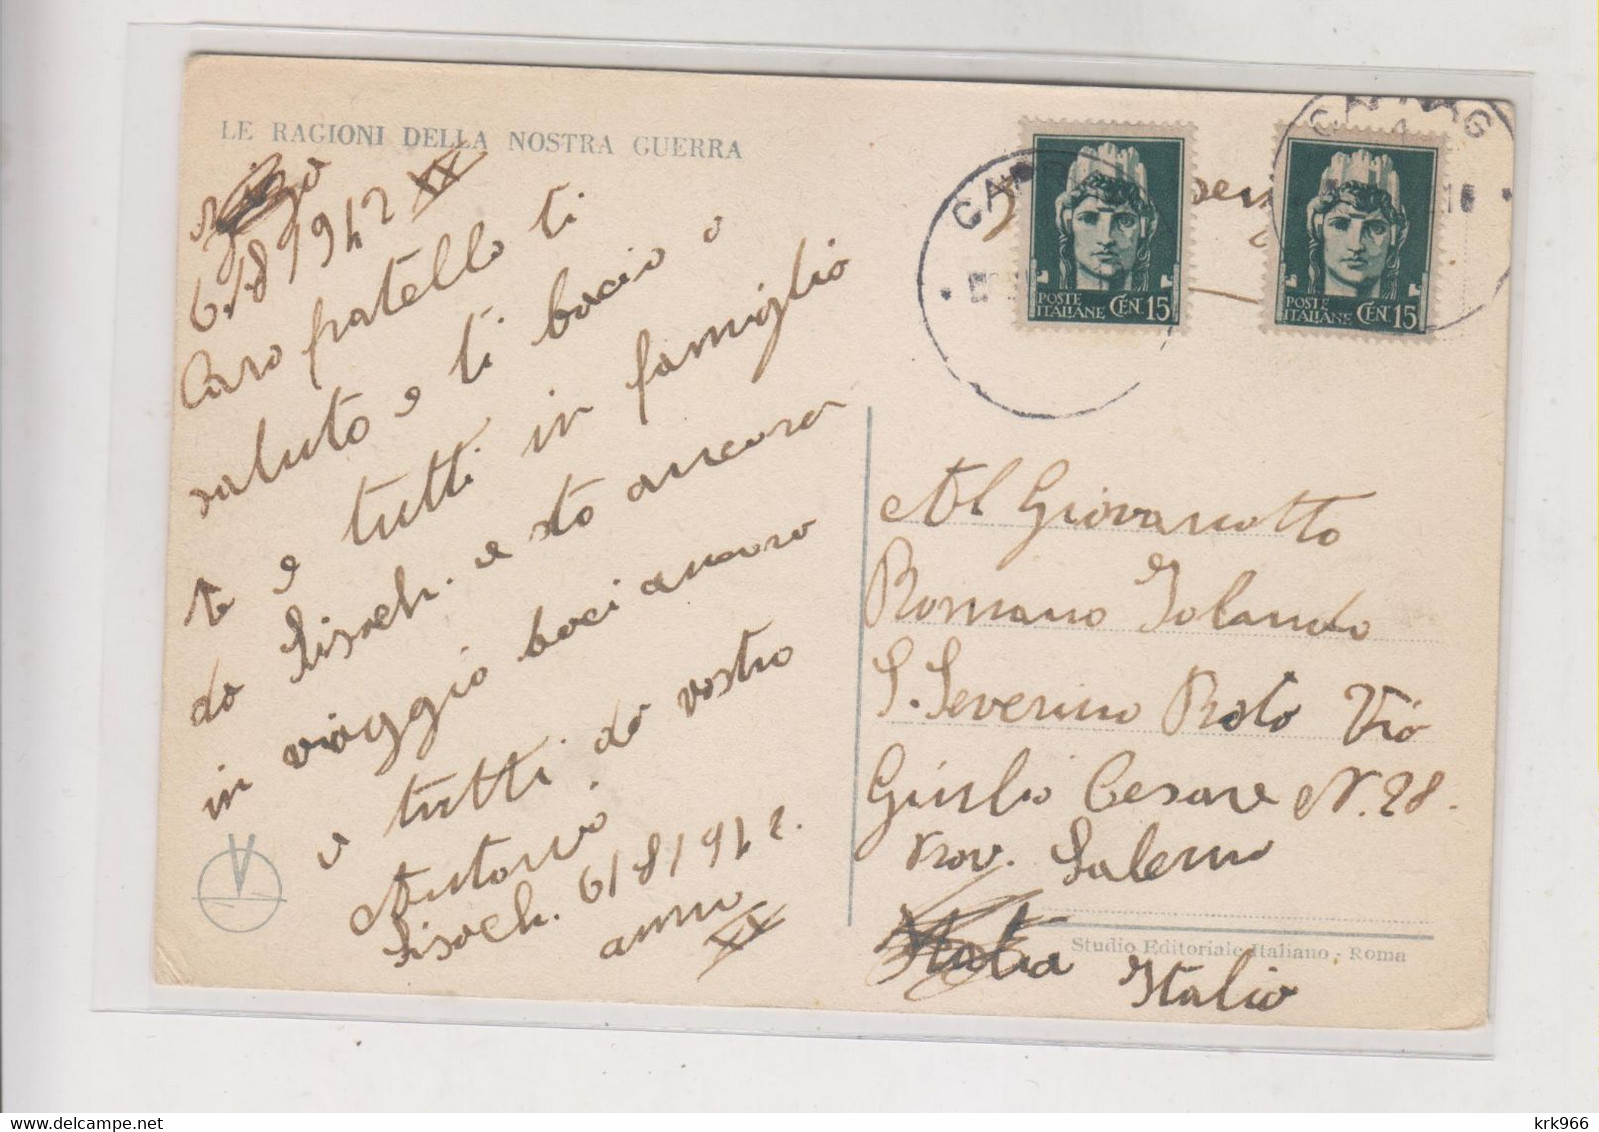 LE RAGIONI DELLA NOSTRA GUERRA
6/8/942 XX
Caro fratello ti
saluto e ti bacio a
te e tutti in famiglia
da Sisach. e sto ancora
in viaggio baci ancora
a tutti da vostro
Antonio
Sisach. 6/8/942.
anno
XX
POSTE ITALIANE CEN. 15
POSTE ITALIANE CEN. 15
Al Giovanotto
Romano Iolando
S. Severino Roto Via
Giulio Cesare N. 28.
Prov. Salerno
Italia
Studio Editoriale Italiano - Roma
Italia
krk966